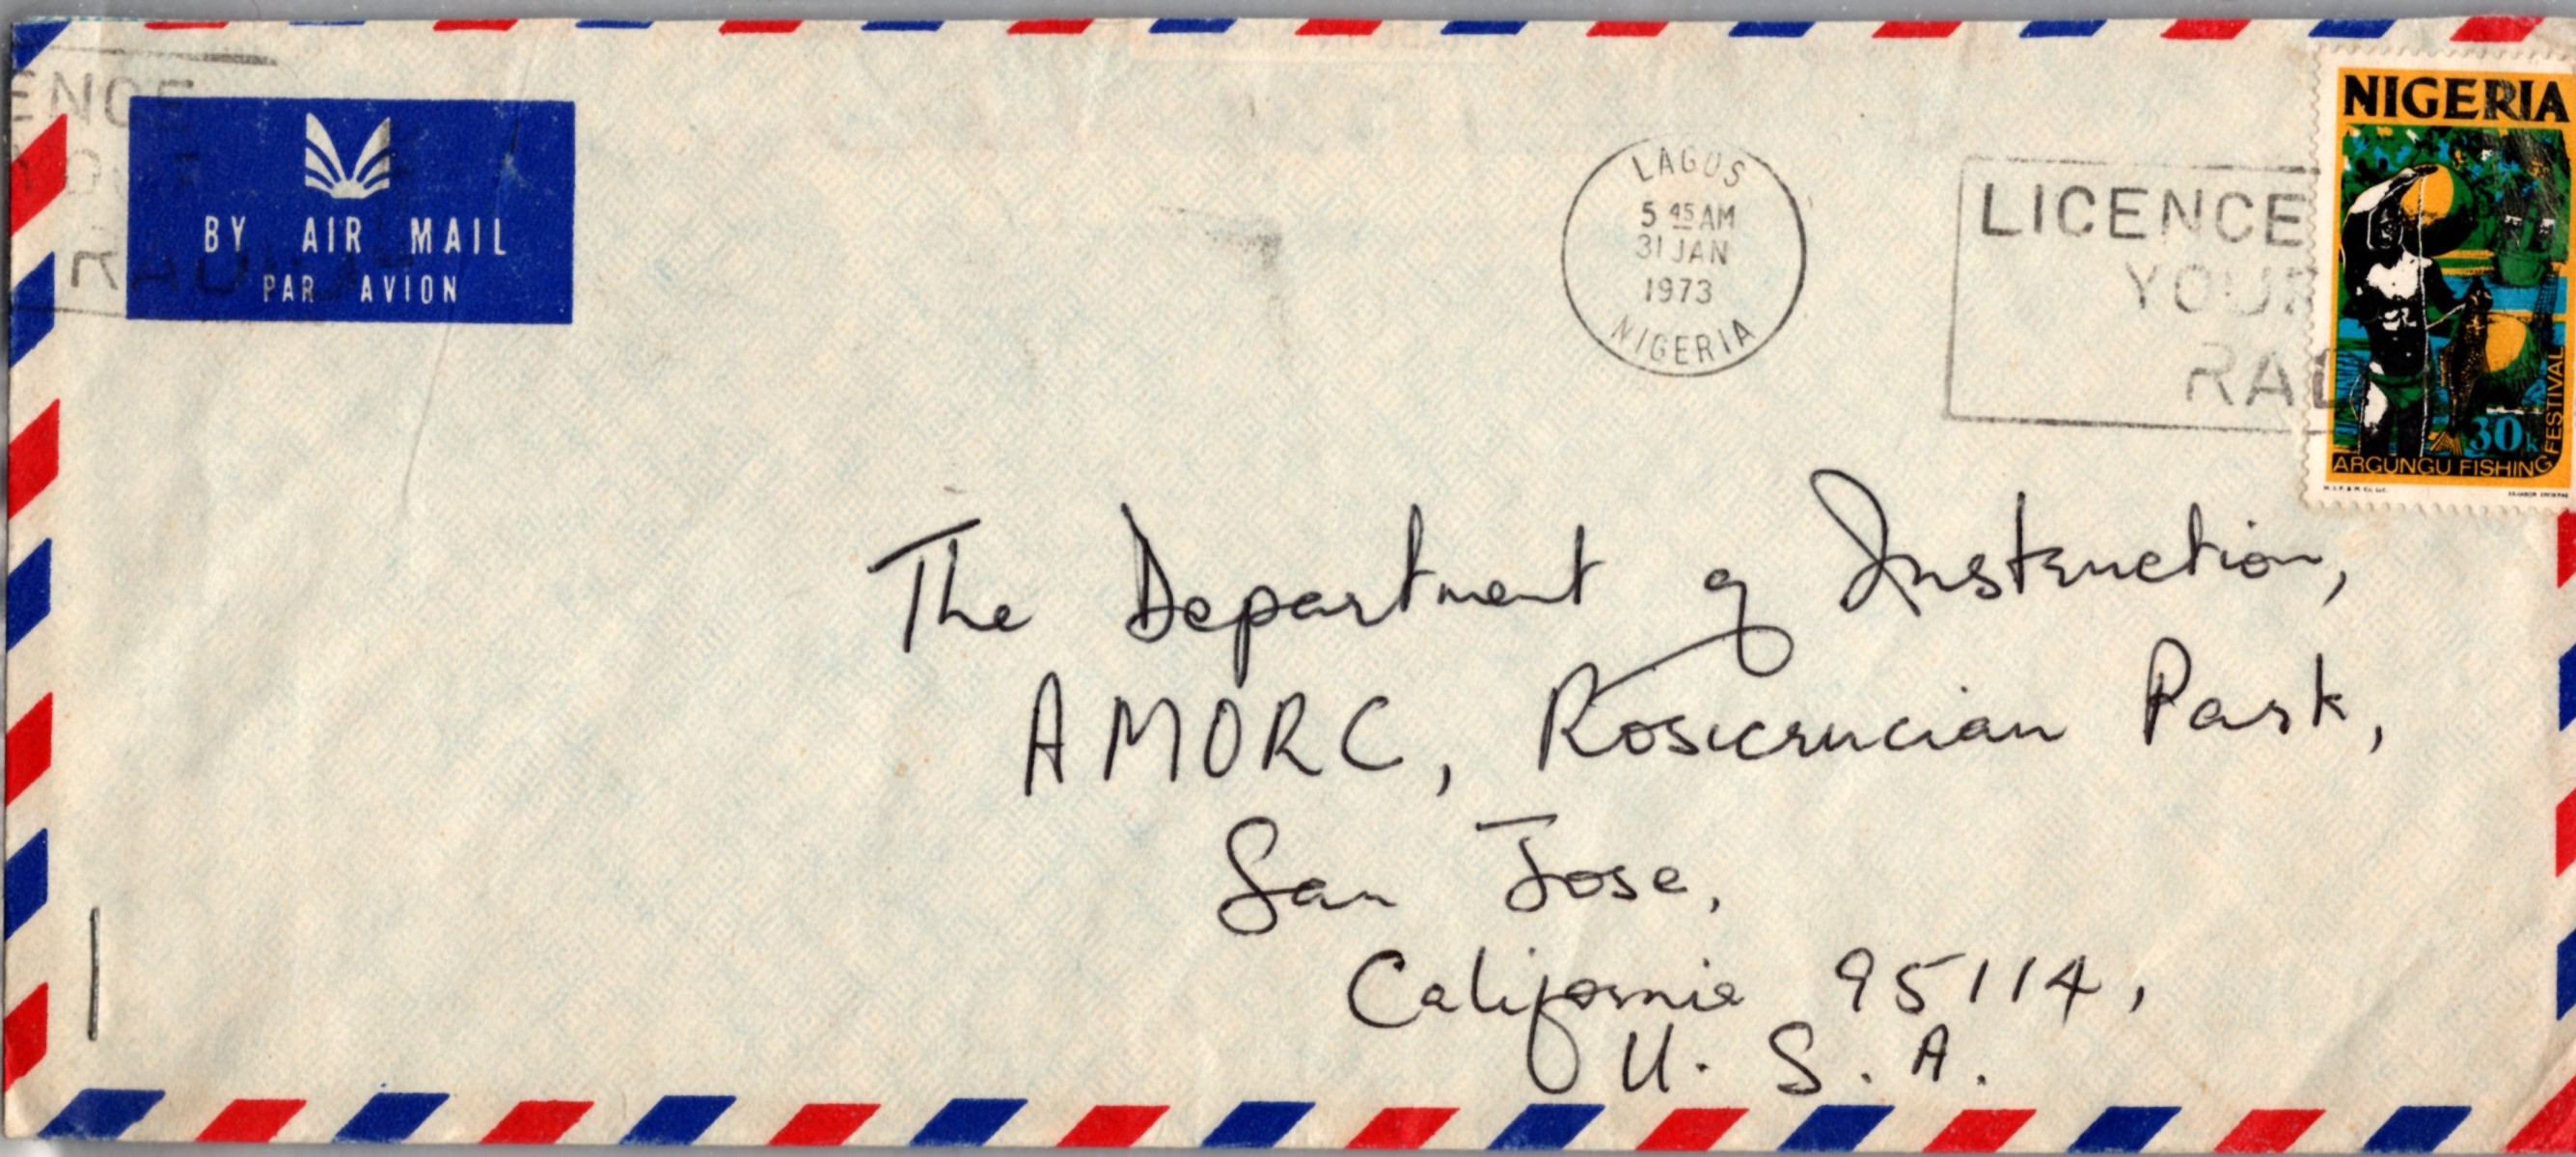 ENCE
RADIO
BY AIR MAIL
PAR AVION
LAGOS
5 45 AM
31 JAN
1973
NIGERIA
LICENCE
YOUR
RAD
NIGERIA
30k
ARGUNGU FISHING FESTIVAL
The Department of Instruction,
AMORC, Rosicrucian Park,
San Jose,
California 95114,
U. S. A.